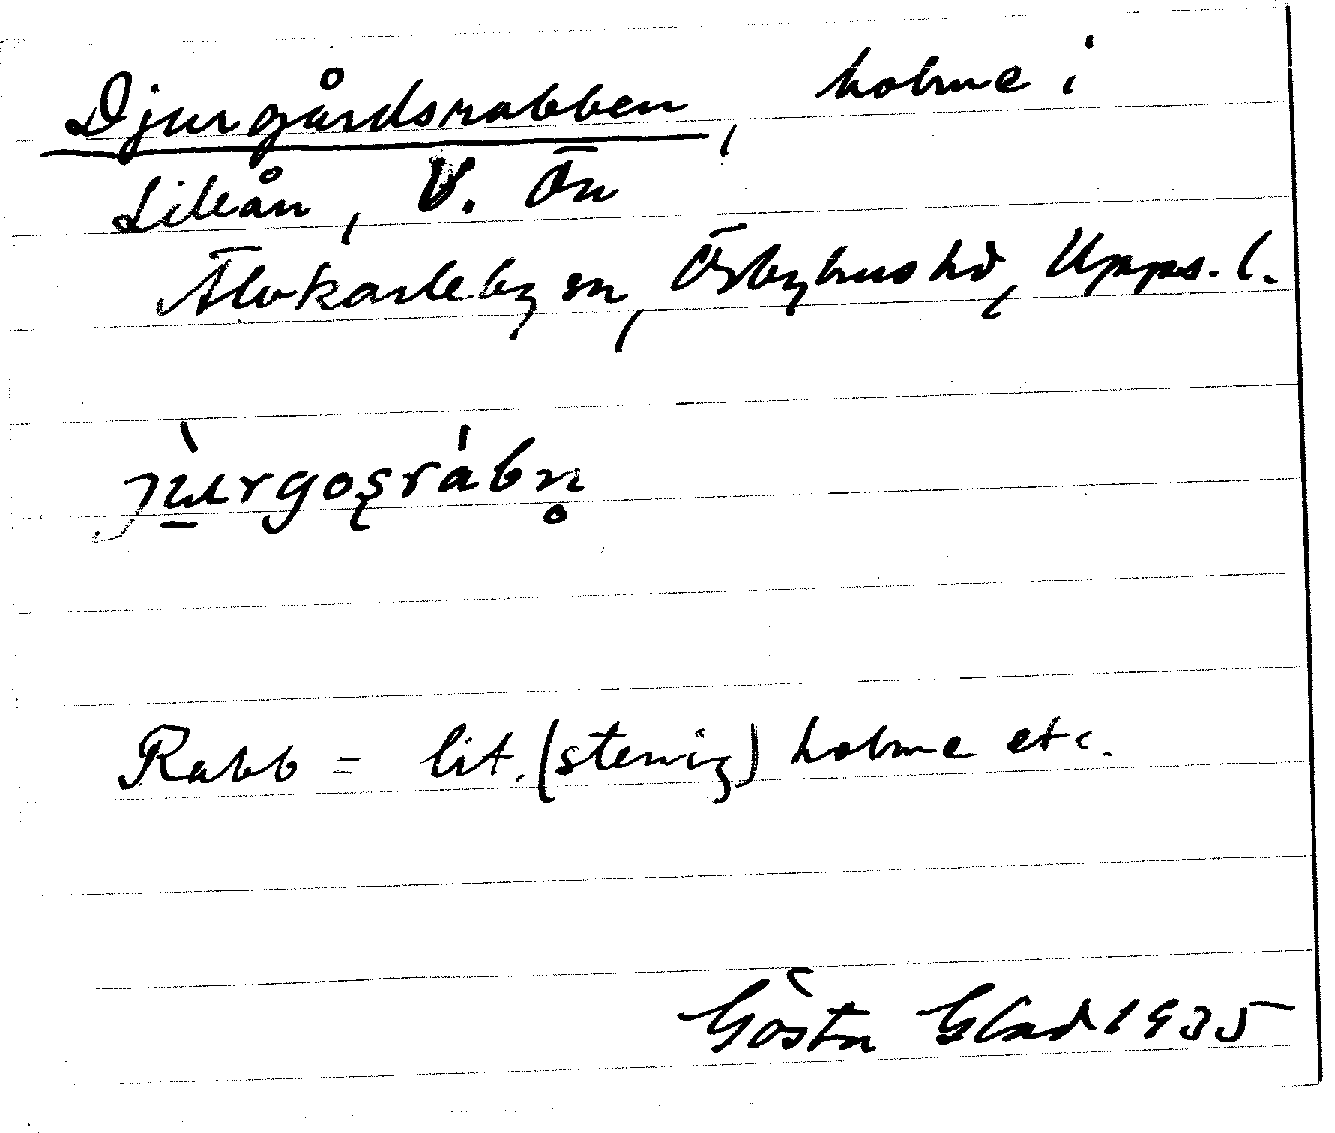 Djurgårdsrabben, holme i
Lillån, V. Ön
Älvkarleby sn, Örbyhus hd, Upps. l.
jùrgosrábn̥
Rabb = lit. (stenig) holme etc.
Gösta Glad 1935